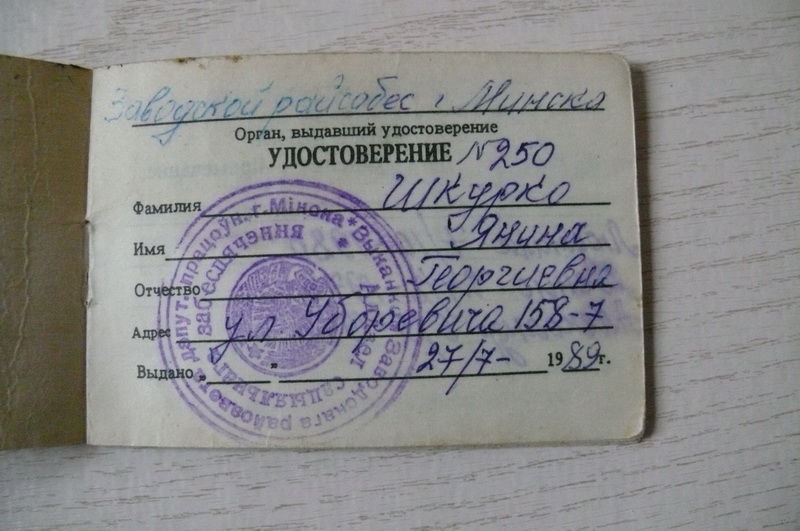 Заводской райсобес г. Минска
Орган, выдавший удостоверение
УДОСТОВЕРЕНИЕ N 250
Фамилия Шкурко
Имя Янина
Отчество Георгиевна
Адрес ул Уборевича 158-7
Выдано „ " 27/7- 1989г.
Выканком Заводскага раённага дэпут. працоўн. г. Мінска *
Аддзел сацыяльнага забеспячэння *